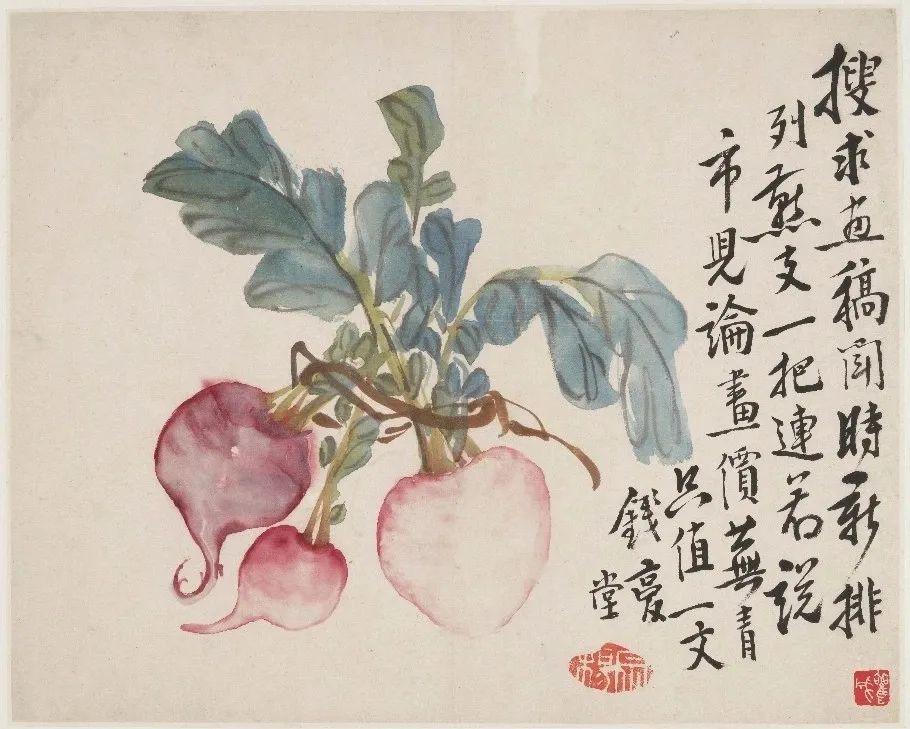 搜求画稿聞時新排
列燕支一把連若説
市兒論畫價蕪青
只值一文
錢 复
堂